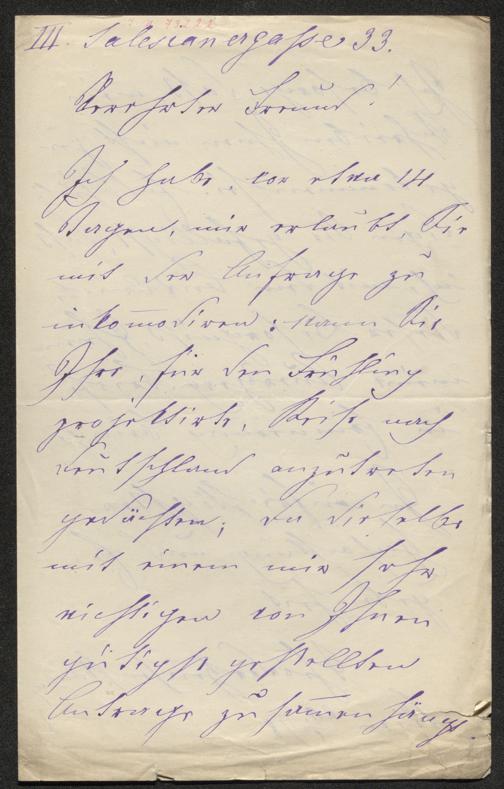 III. Salesianergasse 33.
Verehrter Freund!
Ich habe, vor etwa 14
Tagen, mir erlaubt, Sie
mit der Anfrage zu
inkom̄odiren: wann Sie
Ihre, für den Frühling
projektirte, Reise nach
Deutschland anzutreten
gedächten; da dieselbe
mit einem mir sehr
wichtigen von Ihnen
gütigst gestellten
Antrage zusam̄enhängt.